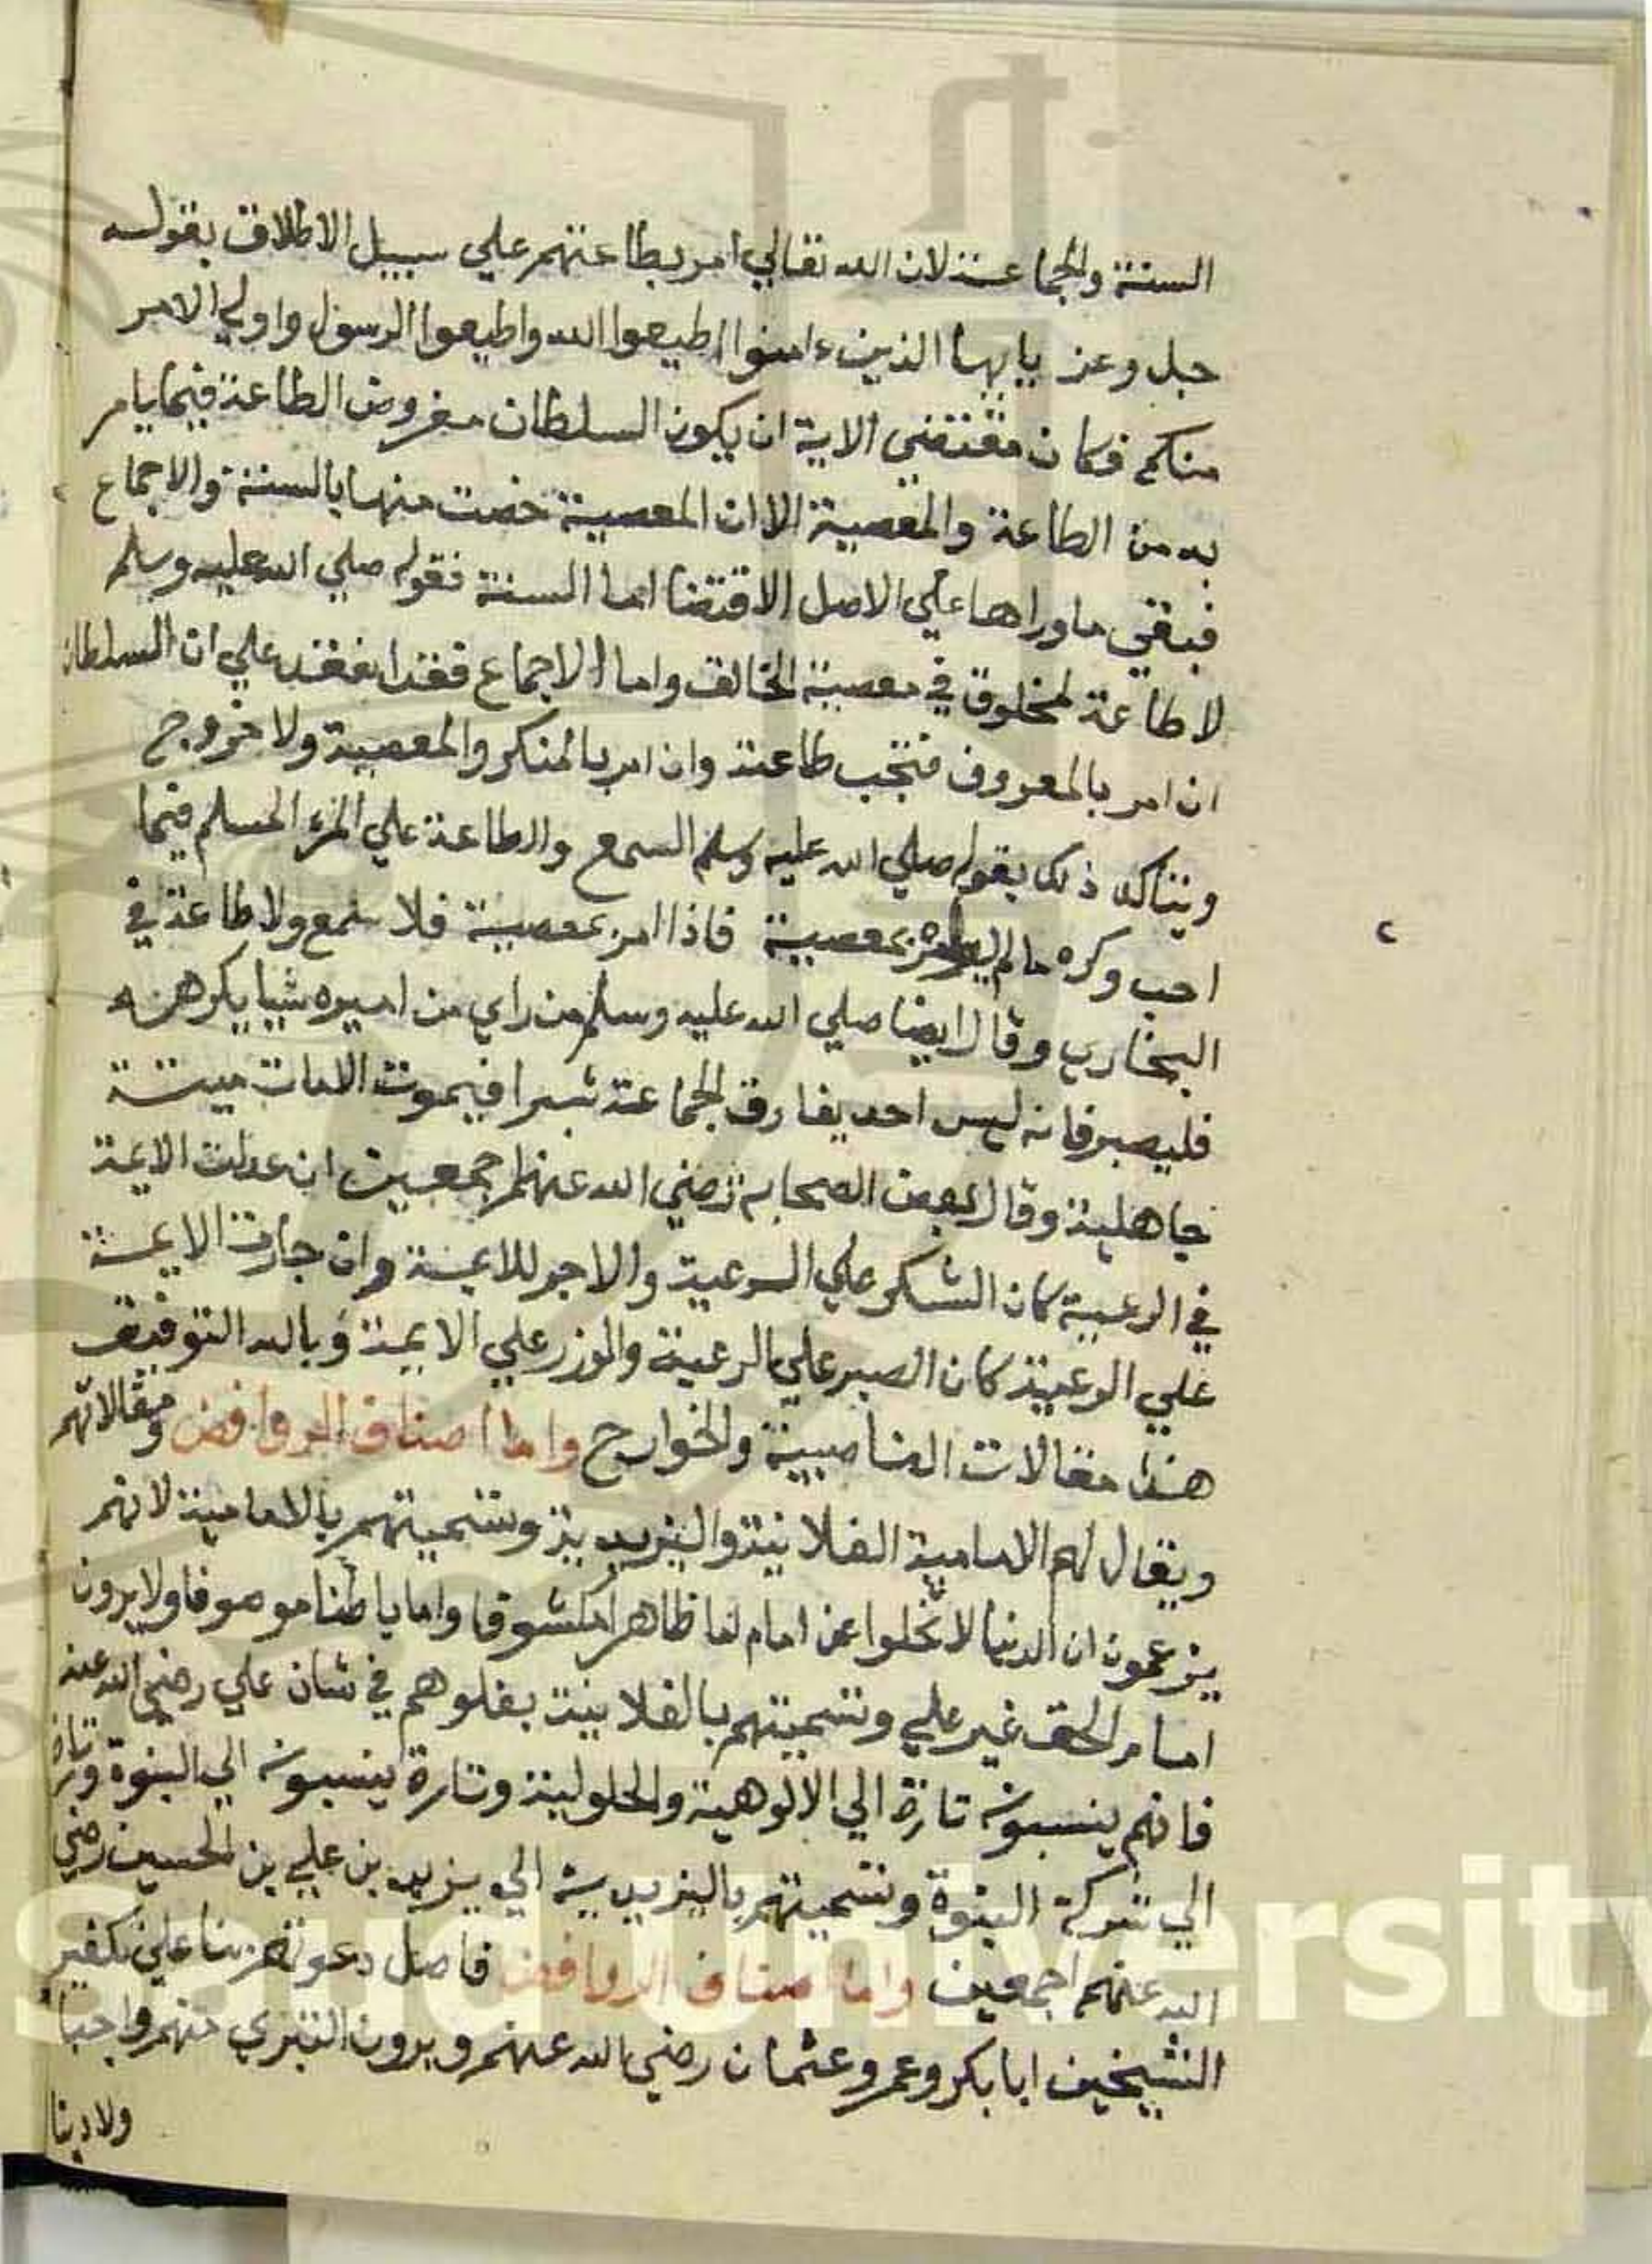 السنة والجماعة لان الله تعالي امر بطاعتهم علي سبيل الاطلاق بقوله
جل وعز يايها الذين ءامنوا اطيعوا الله واطيعوا الرسول واولي الامر
منكم فكان مقتضي الاية ان يكون السلطان مفروض الطاعة فيما يامر
به من الطاعة والمعصية الا ان المعصية خصت منها بالسنة والاجماع
فبقي ماوراها علي الاصل الاقتضا اما السنة فقوله صلي الله عليه وسلم
لا طاعة لمخلوق في معصية الخالق واما الاجماع فقد انعقد علي ان السلطان
ان امر بالمعروف فتجب طاعته وان امر بالمنكر والمعصية ولا خروج
ويتاكد ذلك بقوله صلي الله عليه وسلم السمع والطاعة علي المرء المسلم فيما
احب وكره مالم بمعصية فاذا امر بمعصية فلا سمع ولا طاعة في
البخاري وقال ايضا صلي الله عليه وسلم من راي من اميره شيا يكرهه
فليصبر فانه ليس احد يفارق الجماعة شبرا فيموت الامات ميتة
جاهلية وقال بعض الصحابه رضي الله عنهم اجمعين ان عدلت الايمة
في الرعية كان الشكر علي الرعية والاجر للايمة وان جارت الايمة
علي الرعية كان الصبر علي الرعية والوزر علي الايمة وبالله التوفيق
هذا مقالات الناصبية والخوارج واما اصناف الروافض ومقالاتهم
ويقال لهم الامامية الغلانية واليزيدية وتسميتهم بالامامية لانهم
يزعمون ان الدنيا لا تخلوا عن امام اما ظاهرا مكشوفا واما باطنا موصوفا ولا يرون
امام الحق غير علي وتسميتهم بالغلانية بغلوهم في شان علي رضي الله عنه
فانهم ينسبونه تارة الي الالوهية والحلولية وتارة ينسبونه الي النبوة وتارة
الي شركة النبوة وتسميتهم باليزيدية الي يزيد بن علي بن الحسين رضي
الله عنهم اجمعين واما اصناف الروافض فاصل دعوتهم بنا علي تكفير
الشيخين ابا بكر وعمر وعثمان رضي الله عنهم ويرون التبري منهم واجبا
ولا دينا
Saud University